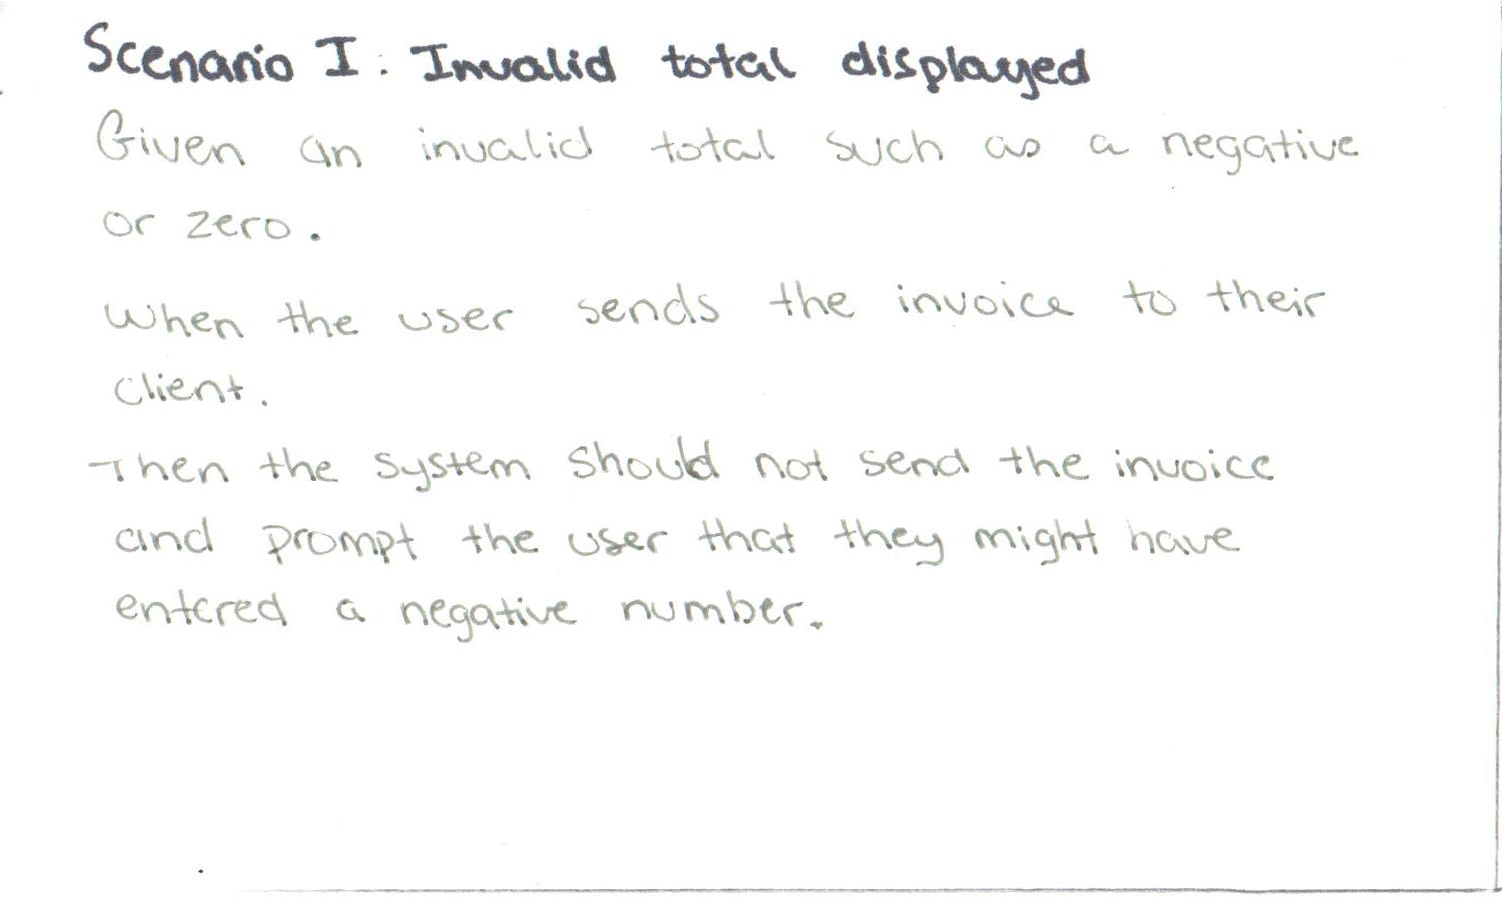 Scenario I: Invalid total displayed
Given an invalid total such as a negative
or zero.
When the user sends the invoice to their
client.
Then the system should not send the invoice
and prompt the user that they might have
entered a negative number.